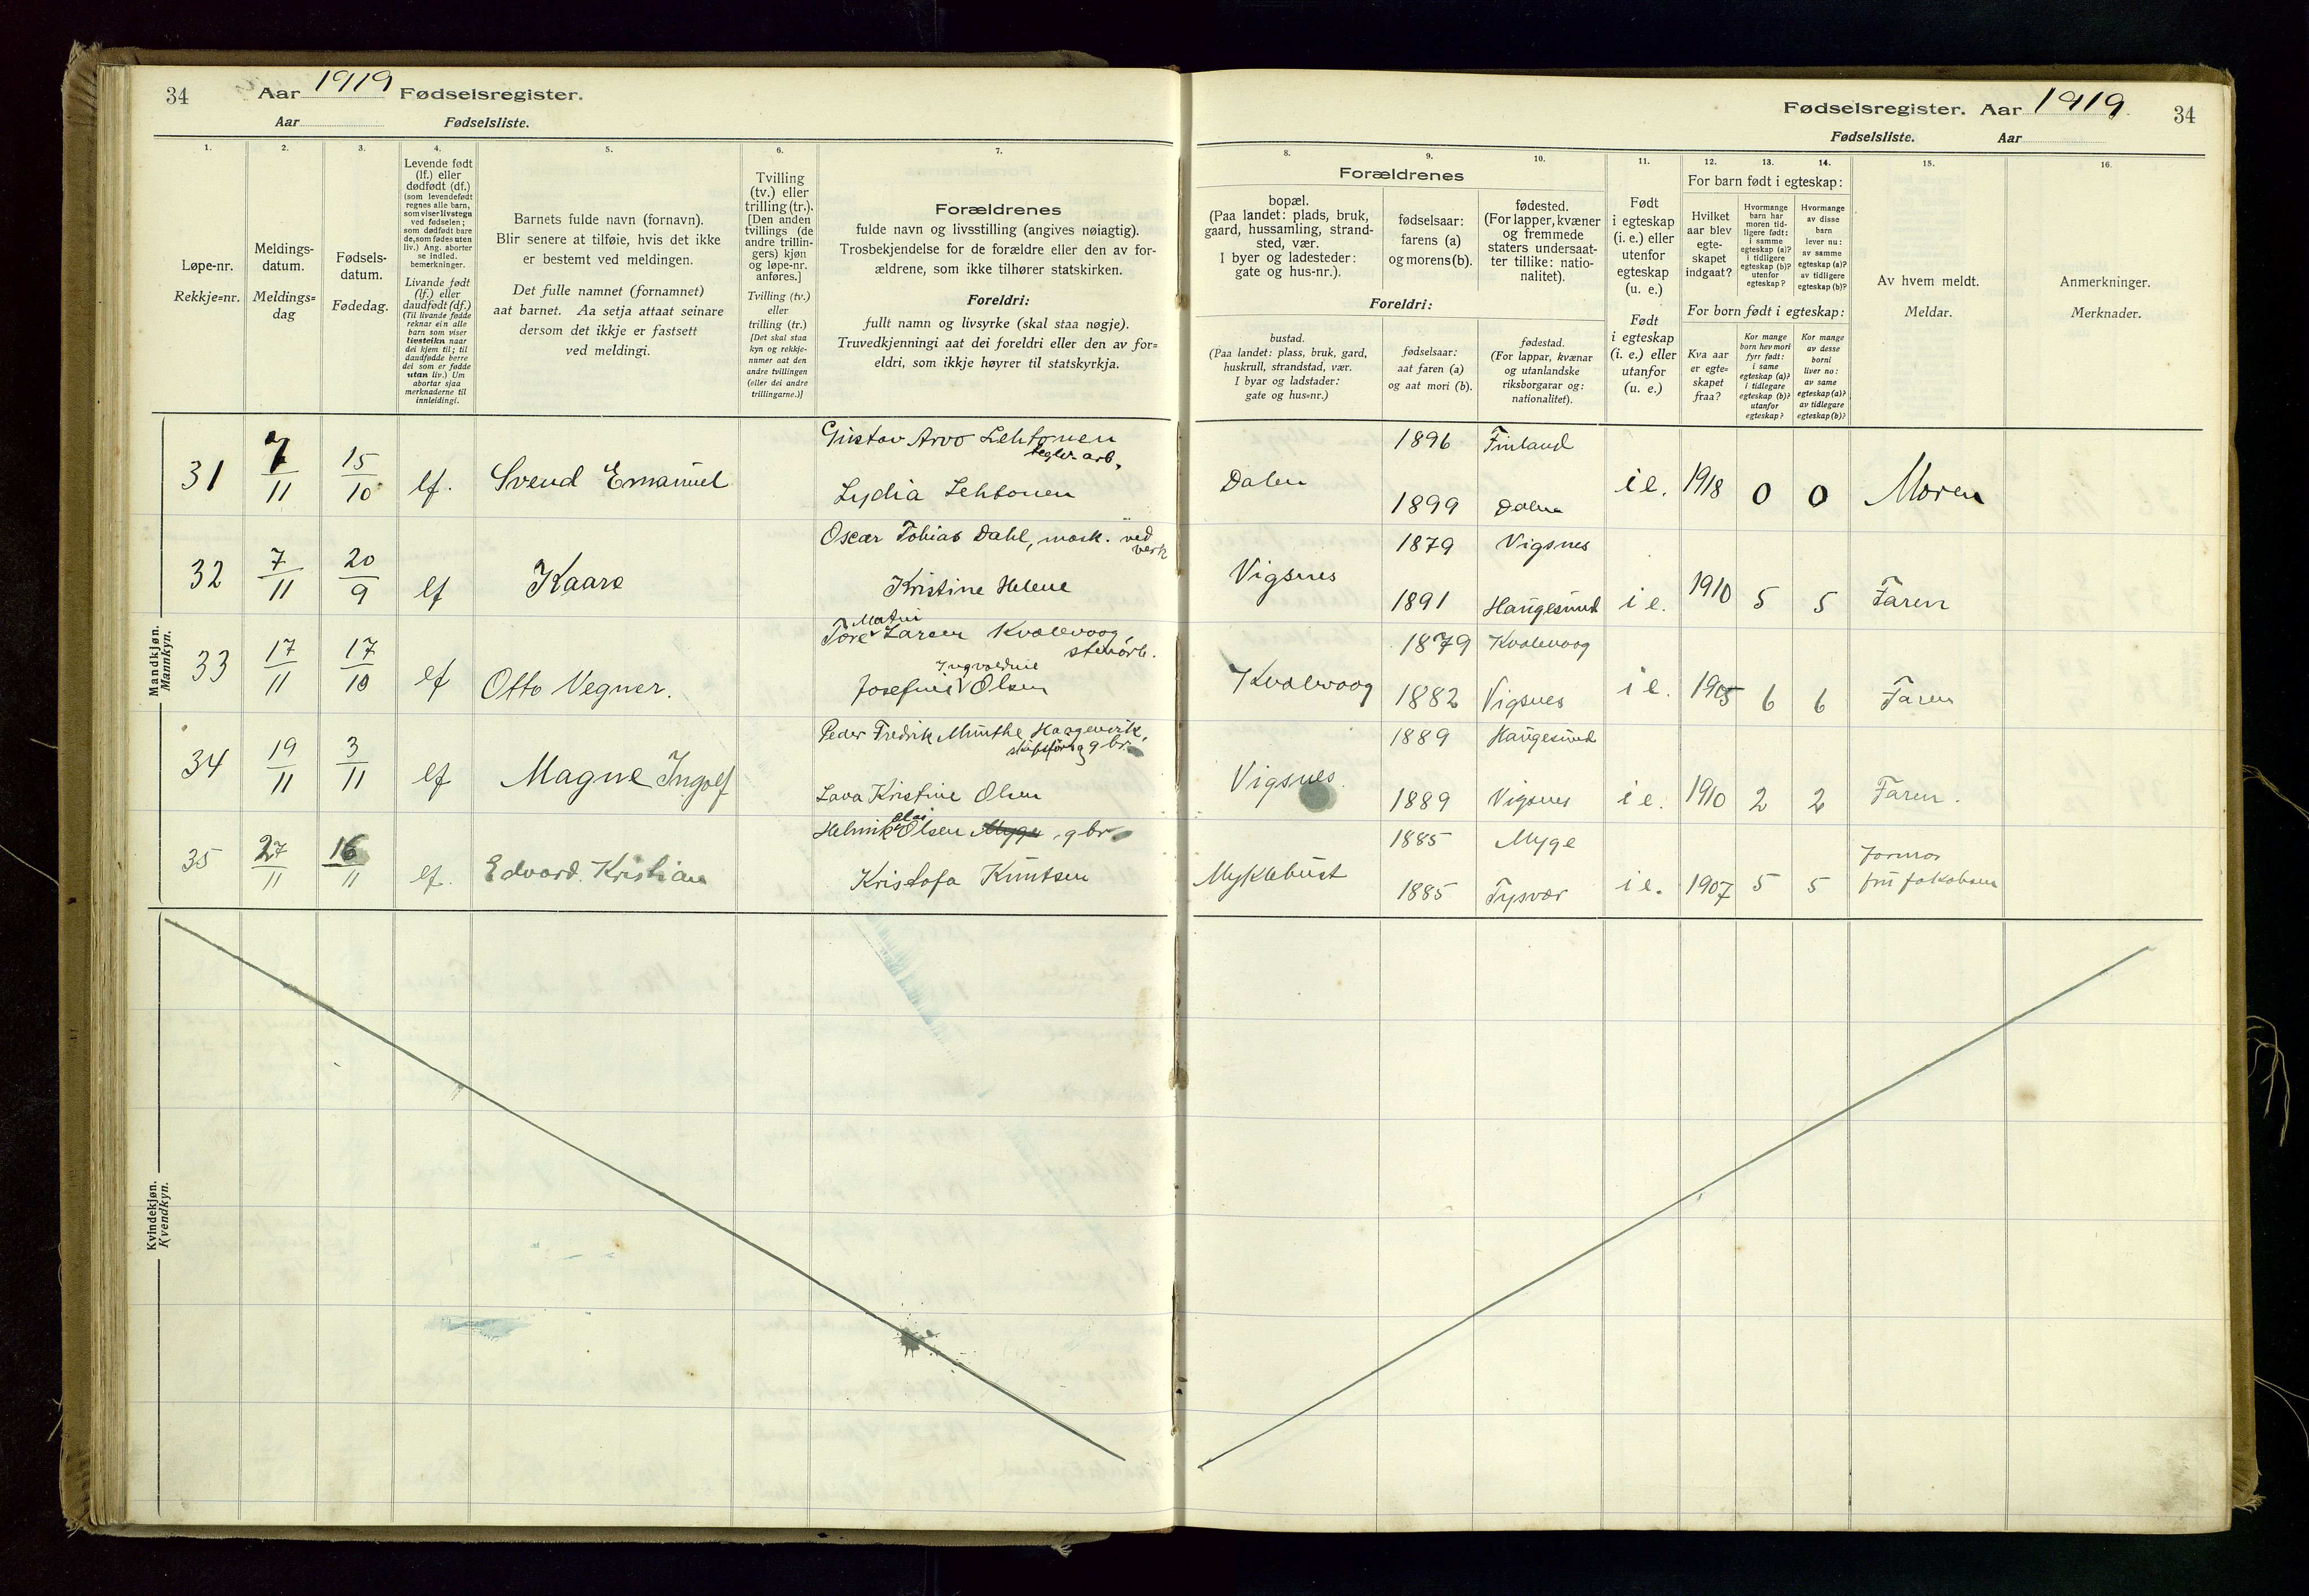 34 Aar 1919 Fødselsregister.
Aar Fødselsliste.
1. 2. 3. 4. 5. 6. 7.
Løpe-nr.
Rekkje=nr.
Meldings-
datum.
Meldings=
dag
Fødsels-
datum.
Fødedag.
Levende født
(lf.) eller
dødfødt (df.)
(som levendefødt
regnes alle barn,
som viser livstegn
ved fødselen;
som dødfødt bare
de, som fødes uten
liv.) Ang. aborter
se indled.
bemerkninger.
Livande født
(lf.) eller
daudfødt (df.)
(Til livande fødde
reknar ein alle
barn som viser
livsteikn naar
dei kjem til; til
daudfødde berre
dei som er fødde
utan liv.) Um
abortar sjaa
merknaderne til
innleidingi.
Barnets fulde navn (fornavn).
Blir senere at tilføie, hvis det ikke
er bestemt ved meldingen.
Det fulle namnet (fornamnet)
aat barnet. Aa setja attaat seinare
dersom det ikkje er fastsett
ved meldingi.
Tvilling
(tv.) eller
trilling (tr.).
[Den anden
tvillings (de
andre trillin-
gers) kjøn
og løpe-nr.
anføres.]
Tvilling (tv.)
eller
trilling (tr.)
[Det skal staa
kyn og rekkje-
nummer aat den
andre tvillingen
(eller dei andre
trillingarne.)]
Forældrenes
fulde navn og livsstilling (angives nøiagtig).
Trosbekjendelse for de forældre eller den av for-
ældrene, som ikke tilhører statskirken.
Foreldri:
fullt namn og livsyrke (skal staa nøgje).
Truvedkjenningi aat dei foreldri eller den av for=
eldri, som ikkje høyrer til statskyrkja.
Mandkjøn.
Mannkyn.
31 7/11 15/10 lf. Svend Emanuel
Gustav Arvo Lehtonen
tegler. arb.
Lydia Lehtonen
32 7/11 20/9 lf Kaare
Oscar Tobias Dahl, mask. ved
verk
Kristine Helene
33 17/11 17/10 lf Otto Vegner.
Martin
Tore Larsen Kvalevaag,
stenarb.
Ingvaldine
Josefine Olsen
34 19/11 3/11 lf Magne Ingolf
Peder Fredrik Munthe Haagenvik,
gbr.
Lava Kristine Olsen
35 27/11 16/11 lf. Edvard Kristian
Helmik Olsen Myge, gbr.
Kristofa Knutsen
Kvindekjøn.
Kvendkyn.
Fødselsregister. Aar 1919. 34
Fødselsliste. Aar
8. 9. 10. 11. 12. 13. 14. 15. 16.
Forældrenes
bopæl.
(Paa landet: plads, bruk,
gaard, hussamling, strand-
sted, vær.
I byer og ladesteder:
gate og hus-nr.).
fødselsaar:
farens (a)
og morens (b).
fødested.
(For lapper, kvæner
og fremmede
staters undersaat-
ter tillike: natio-
nalitet).
Foreldri:
bustad.
(Paa landet: plass, bruk, gard,
huskrull, strandstad, vær.
I byar og ladstader:
gate og hus=nr.)
fødselsaar:
aat faren (a)
og aat mori (b).
fødestad.
(For lappar, kvænar
og utanlandske
riksborgarar og:
nationalitet).
Født
i egteskap
(i. e.) eller
utenfor
egteskap
(u. e.)
Født
i egteskap
(i. e.) eller
utanfor
(u. e.)
For barn født i egteskap:
Hvilket
aar blev
egte-
skapet
indgaat?
Hvormange
barn har
moren tid-
ligere født:
i samme
egteskap (a)?
i tidligere
egteskap (b)?
utenfor
egteskap?
Hvormange
av disse
barn
lever nu:
av samme
egteskap (a)?
av tidligere
egteskap (b)?
For born født i egteskap:
Kva aar
er egte=
skapet
fraa?
Kor mange
born hev mori
fyrr født:
i same
egteskap (a)?
i tidlegare
egteskap (b)?
utanfor
egteskap?
Kor mange
av desse
borni
liver no:
av same
egteskap (a)?
av tidlegare
egteskap (b)?
Av hvem meldt.
Meldar.
Anmerkninger.
Merknader.
Dalen 1896 Finland
1899 Dalen i e. 1918 0 0 Moren
Vigsnes 1879 Vigsnes
1891 Haugesund i e. 1910 5 5 Faren
Kvalevaag 1879 Kvalevaag
1882 Vigsnes i e. 1905 6 6 Faren
Vigsnes 1889 Haugesund
1889 Vigsnes i e. 1910 2 2 Faren.
Myklebust 1885 Myge
1885 Tysvær i e. 1907 5 5 Jormor
fru Jakobsen